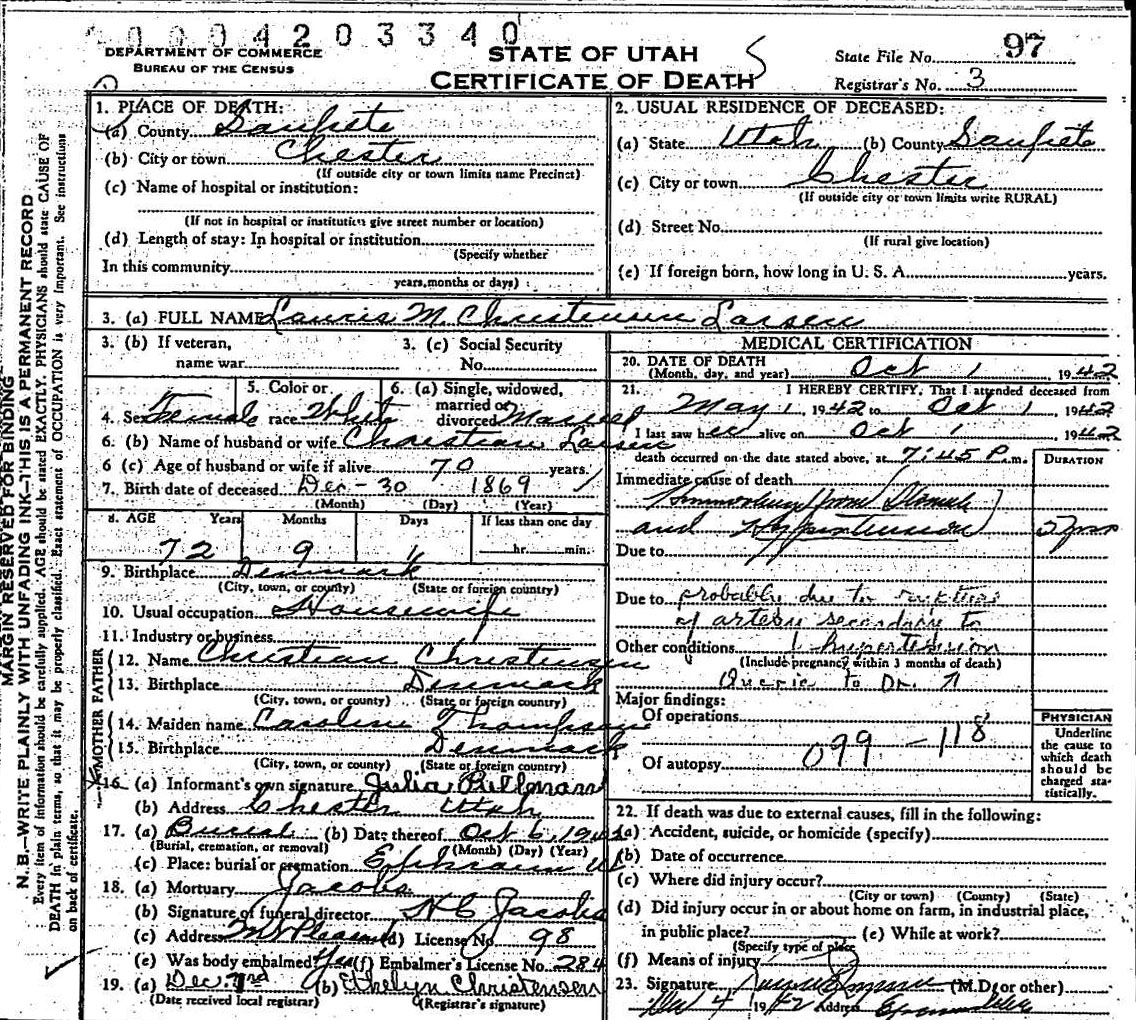 0000 4203340
DEPARTMENT OF COMMERCE
BUREAU OF THE CENSUS
STATE OF UTAH
CERTIFICATE OF DEATH
State File No. 97
Registrar's No. 3
MARGIN RESERVED FOR BINDING
N. B.—WRITE PLAINLY WITH UNFADING INK—THIS IS A PERMANENT RECORD
Every item of information should be carefully supplied. AGE should be stated EXACTLY. PHYSICIANS should state CAUSE OF
DEATH in plain terms, so that it may be properly classified. Exact statement of OCCUPATION is very important. See instructions
on back of certificate.
1. PLACE OF DEATH:
(a) County Sanpete
(b) City or town Chester
(If outside city or town limits name Precinct)
(c) Name of hospital or institution:
(If not in hospital or institution give street number or location)
(d) Length of stay: In hospital or institution
(Specify whether
In this community
years, months or days)
2. USUAL RESIDENCE OF DECEASED:
(a) State Utah (b) County Sanpete
(c) City or town Chester
(If outside city or town limits write RURAL)
(d) Street No.
(If rural give location)
(e) If foreign born, how long in U. S. A. years.
3. (a) FULL NAME M. Christensen Larsen
3. (b) If veteran,
name war
3. (c) Social Security
No.
4. Sex Female
5. Color or
race White
6. (a) Single, widowed,
married or
divorced Married
6. (b) Name of husband or wife Christian Larsen
6 (c) Age of husband or wife if alive 70 years.
7. Birth date of deceased Dec - 30 1869
(Month) (Day) (Year)
8. AGE Years Months Days If less than one day
72 9 1 hr. min.
9. Birthplace Denmark
(City, town, or county) (State or foreign country)
10. Usual occupation Housewife
11. Industry or business
FATHER
12. Name Christian Christensen
13. Birthplace Denmark
(City, town, or county) (State or foreign country)
MOTHER
14. Maiden name Caroline Thompson
15. Birthplace Denmark
(City, town, or county) (State or foreign country)
16. (a) Informant's own signature Julia
(b) Address Chester Utah
17. (a) Burial (b) Date thereof Oct 6, 1942
(Burial, cremation, or removal) (Month) (Day) (Year)
(c) Place: burial or cremation Ephraim Ut
18. (a) Mortuary Jacobs
(b) Signature of funeral director H C Jacobs
(c) Address Mt Pleasant (d) License No. 98
(e) Was body embalmed Yes (f) Embalmer's License No. 284
19. (a) Dec. (b) Ethelyn Christensen
(Date received local registrar) (Registrar's signature)
MEDICAL CERTIFICATION
20. DATE OF DEATH
(Month, day, and year) Oct 1, 1942
21. I HEREBY CERTIFY, That I attended deceased from
May 1, 1942 to Oct 1, 1942
I last saw her alive on Oct 1, 1942
death occurred on the date stated above, at 7:45 P.m.
DURATION
Immediate cause of death
Hemorrhage (from Stomach)
and Hypertension 5 yrs
Due to
Due to probably due to rupture
of artery secondary to
Other conditions hypertension
(Include pregnancy within 3 months of death)
Querie to Dr.
Major findings:
Of operations
099 - 118
Of autopsy
PHYSICIAN
Underline
the cause to
which death
should be
charged sta-
tistically.
22. If death was due to external causes, fill in the following:
(a) Accident, suicide, or homicide (specify)
(b) Date of occurrence
(c) Where did injury occur?
(City or town) (County) (State)
(d) Did injury occur in or about home on farm, in industrial place,
in public place? (e) While at work?
(Specify type of place
(f) Means of injury
23. Signature (M.D. or other)
4 1942 Address